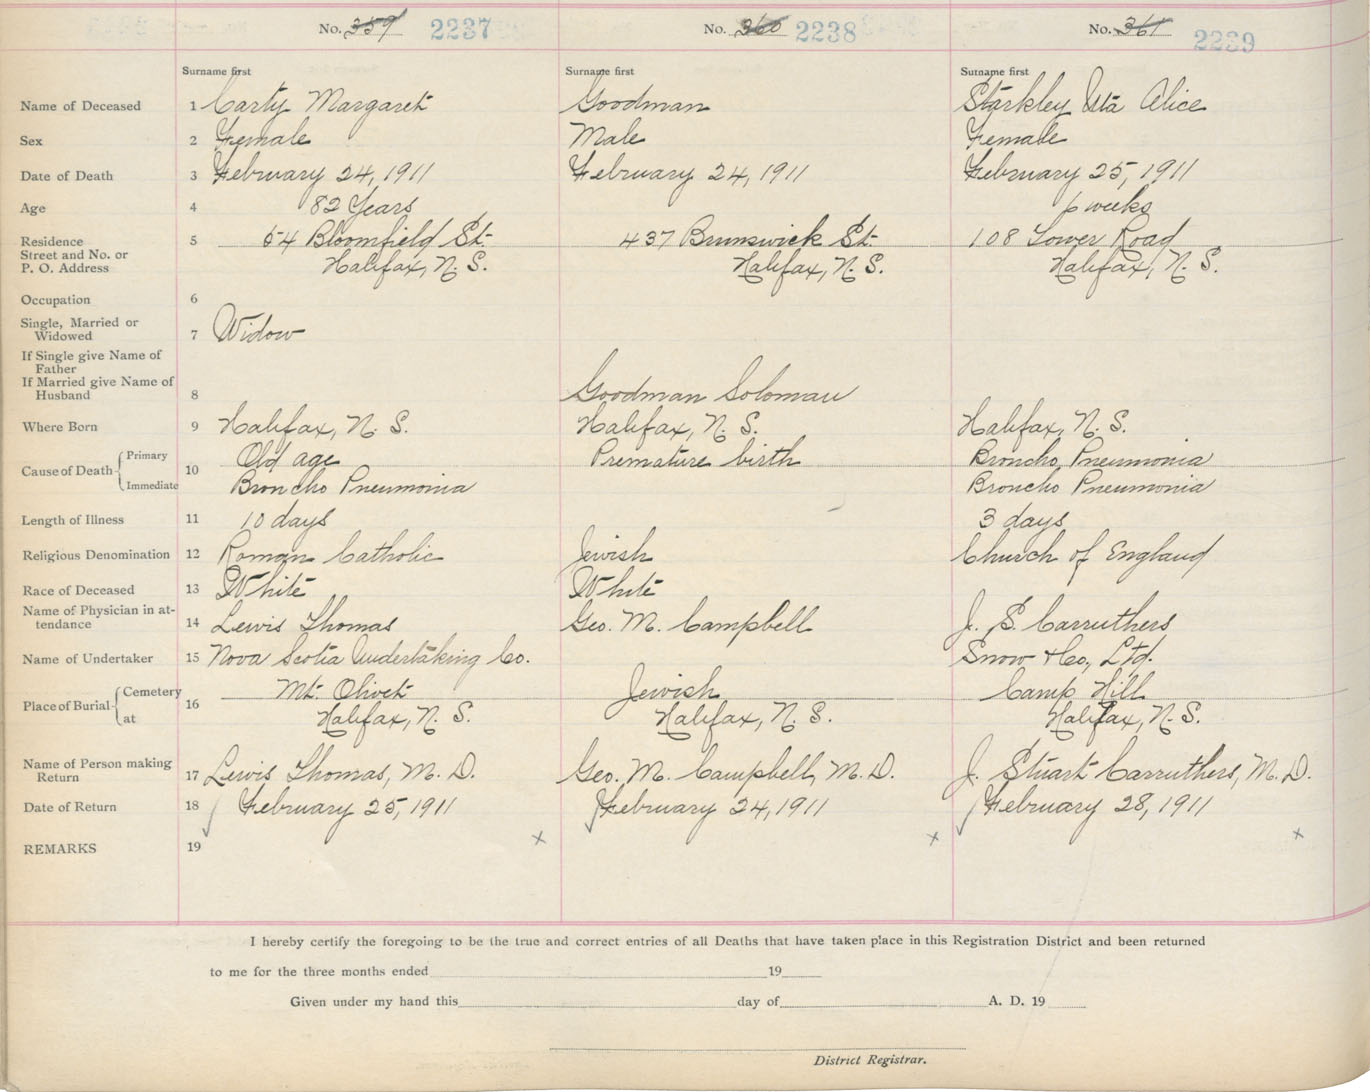 No. 359 2237
No. 360 2238
No. 361 2239
Surname first
Surname first
Surname first
Name of Deceased 1 Carty Margaret Goodman Starkley Alice
Sex 2 Female Male Female
Date of Death 3 February 24, 1911 February 24, 1911 February 25, 1911
Age 4 82 Years 6 weeks
Residence 5 54 Bloomfield St. 437 Brunswick St. 108 Lower Road
Street and No. or
P. O. Address Halifax, N. S. Halifax, N. S. Halifax, N. S.
Occupation 6
Single, Married or
Widowed 7 Widow
If Single give Name of
Father
If Married give Name of
Husband 8 Goodman Soloman
Where Born 9 Halifax, N. S. Halifax, N. S. Halifax, N. S.
Cause of Death 10
Primary Old age Premature birth Broncho Pneumonia
Immediate Broncho Pneumonia Broncho Pneumonia
Length of Illness 11 10 days 3 days
Religious Denomination 12 Roman Catholic Jewish Church of England
Race of Deceased 13 White White
Name of Physician in at-
tendance 14 Lewis Thomas Geo. M. Campbell J. S. Carruthers
Name of Undertaker 15 Nova Scotia Undertaking Co. Snow & Co, Ltd.
Place of Burial 16
Cemetery Mt. Olivet Jewish Camp Hill
at Halifax, N. S. Halifax, N. S. Halifax, N. S.
Name of Person making
Return 17 Lewis Thomas, M. D. Geo. M. Campbell, M. D. J. Stuart Carruthers, M. D.
Date of Return 18 February 25, 1911 February 24, 1911 February 28, 1911
REMARKS 19 x x x
I hereby certify the foregoing to be the true and correct entries of all Deaths that have taken place in this Registration District and been returned
to me for the three months ended 19
Given under my hand this day of A. D. 19
District Registrar.